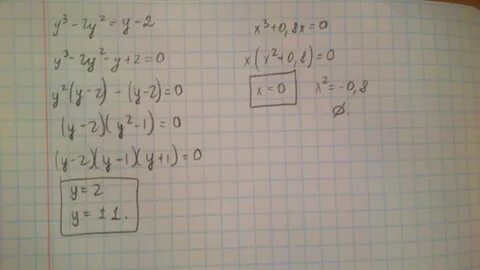 y³ - 2y² = y - 2
y³ - 2y² - y + 2 = 0
y²(y - 2) - (y - 2) = 0
(y - 2)(y² - 1) = 0
(y - 2)(y - 1)(y + 1) = 0
y = 2
y = ± 1.
x³ + 0,8x = 0
x(x² + 0,8) = 0
x = 0 x² = -0,8
∅.